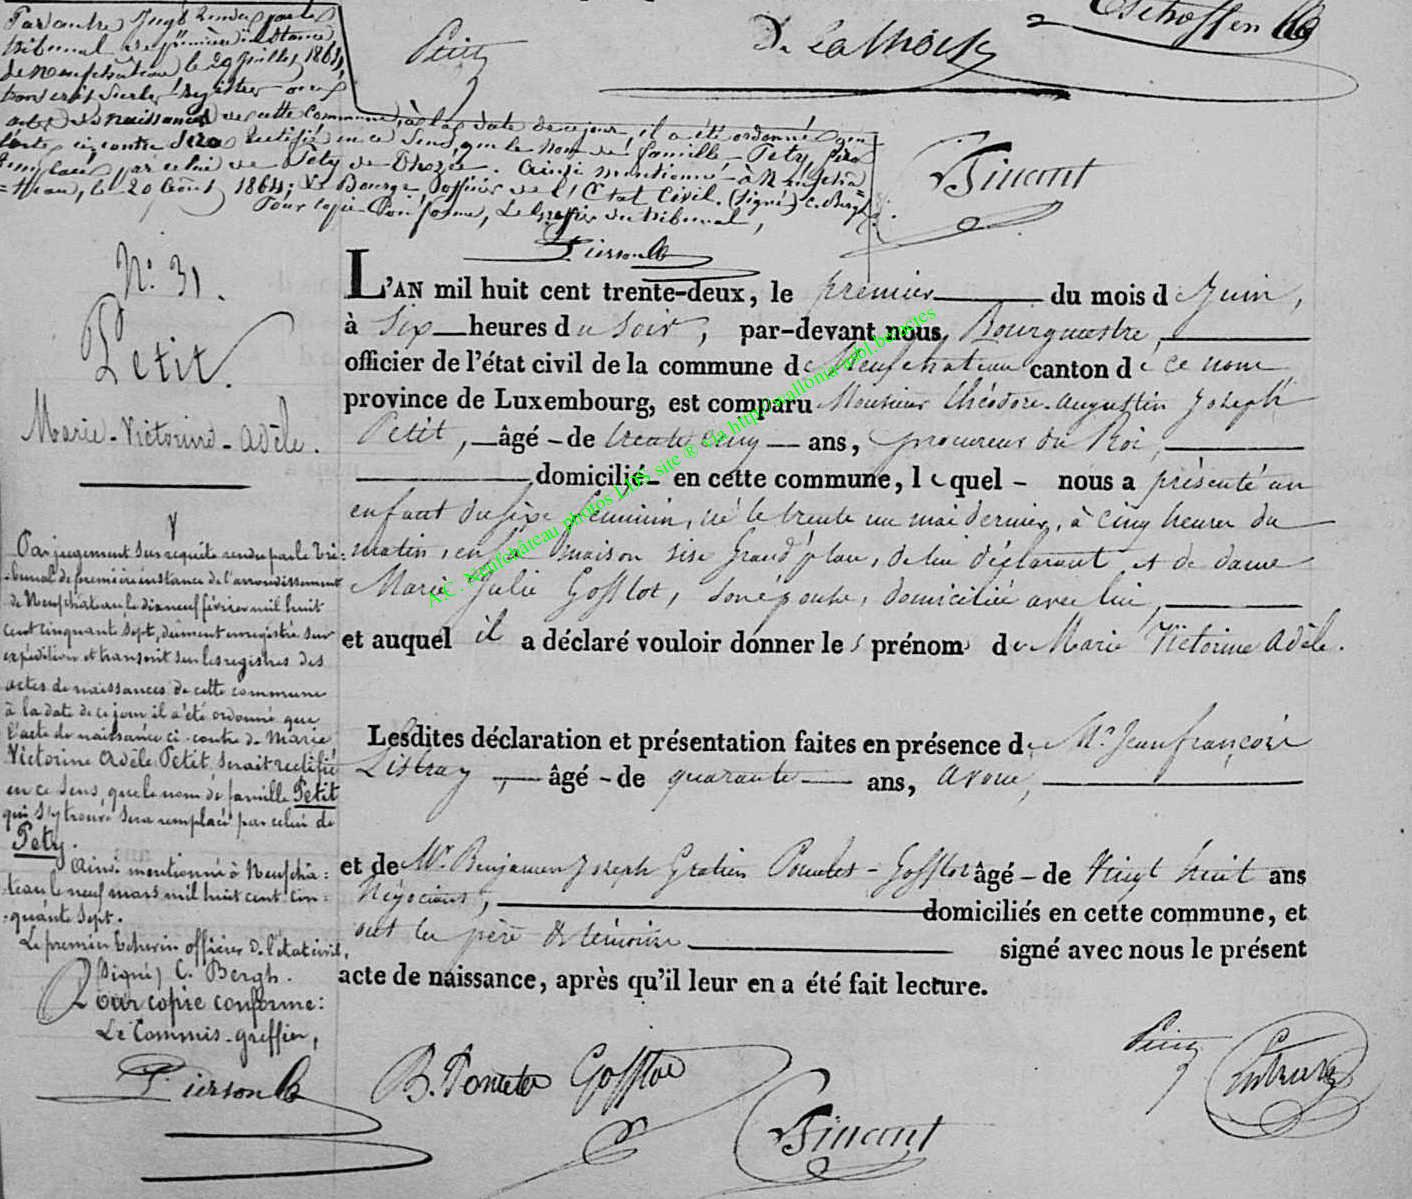 Par autre Jugt rendu par le
tribunal de première instance
de Neufchâteau le 29 Juillet 1864,
transcrit sur les registres aux
actes de naissances de cette commune, à la date de ce jour, il a été ordonné que
l'acte ci-contre sera rectifié en ce sens, que le nom de famille Pety sera
remplacé par celui de Pety de Thozée. Ainsi mentionné à Neufchâ=
=teau, le 20 Août 1864; Le Bourge, officier de l'Etat Civil. (signé) C. Bergh.
Pour copie Conforme, Le Greffier du tribunal,
Pierson
Petit
Vincent
N° 31.
Petit.
Marie-Victorine-Adèle.
L'AN mil huit cent trente-deux, le premier du mois de Juin,
à Six heures du Soir, par-devant nous, Bourgmestre,
officier de l'état civil de la commune de Neufchateau canton de ce nom
province de Luxembourg, est comparu Monsieur Théodore-Augustin Joseph
Petit, âgé de trente cinq ans, procureur du Roi,
domicilié en cette commune, lequel nous a présenté un
enfant du sexe féminin, né le trente un mai dernier, à cinq heures du
matin, en sa maison sise Grand'place, de lui déclarant et de dame
Marie Julie Gofflot, son épouse, domiciliée avec lui,
et auquel il a déclaré vouloir donner les prénoms de Marie Victorine Adèle.
Lesdites déclaration et présentation faites en présence de Mr Jean françois
Listray, âgé de quarante ans, avoué,
et de Mr Benjamin Joseph Gratien Poncelet-Gofflot âgé de Vingt huit ans
Négociant, domiciliés en cette commune, et
ont les père & témoins signé avec nous le présent
acte de naissance, après qu'il leur en a été fait lecture.
Par jugement sur requête rendu par le Tri-
-bunal de première instance de l'arrondissement
de Neufchâteau le dix neuf février mil huit
cent cinquante sept, dûment enregistré sur
expédition et transcrit sur les registres des
actes de naissances de cette commune
à la date de ce jour il a été ordonné que
l'acte de naissance ci-contre de Marie
Victorine Adèle Petit serait rectifié
en ce sens, que le nom de famille Petit
qui s'y trouve sera remplacé par celui de
Pety.
Ainsi mentionné à Neufchâ=
-teau le neuf mars mil huit cent cin=
-quante sept.
Le premier Echevin officier de l'état civil,
(Signé) C. Bergh.
Pour copie conforme:
Le Commis-greffier,
Pierson
B. Poncelet Gofflot
Petit
Vincent
A.C. Neufchâteau photos LDS site ® via http://wallonia-mbl.be/actes